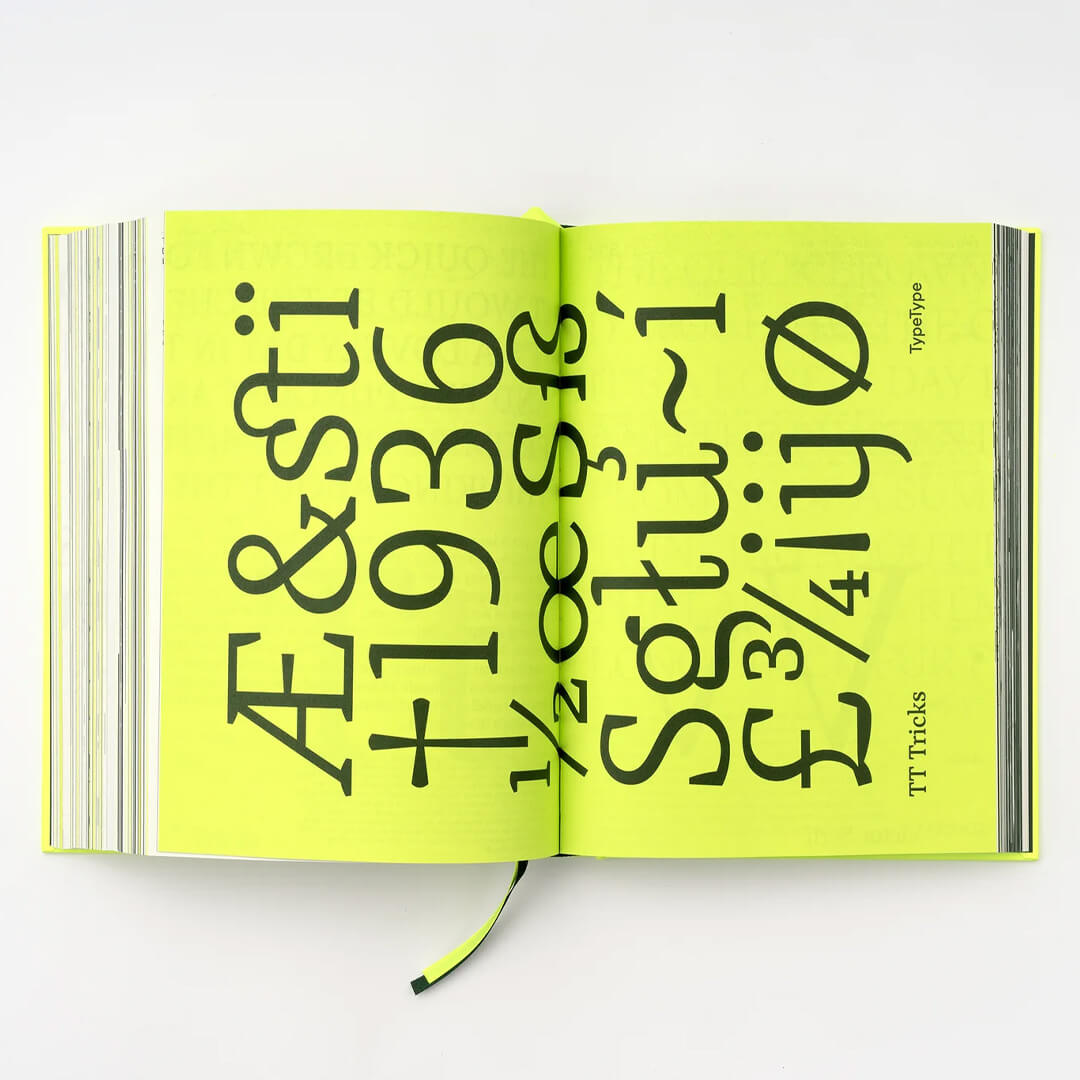 Æ&stï
†1936
½œşß
Sgłu~í
£¾¡ÿø
TT Tricks
TypeType